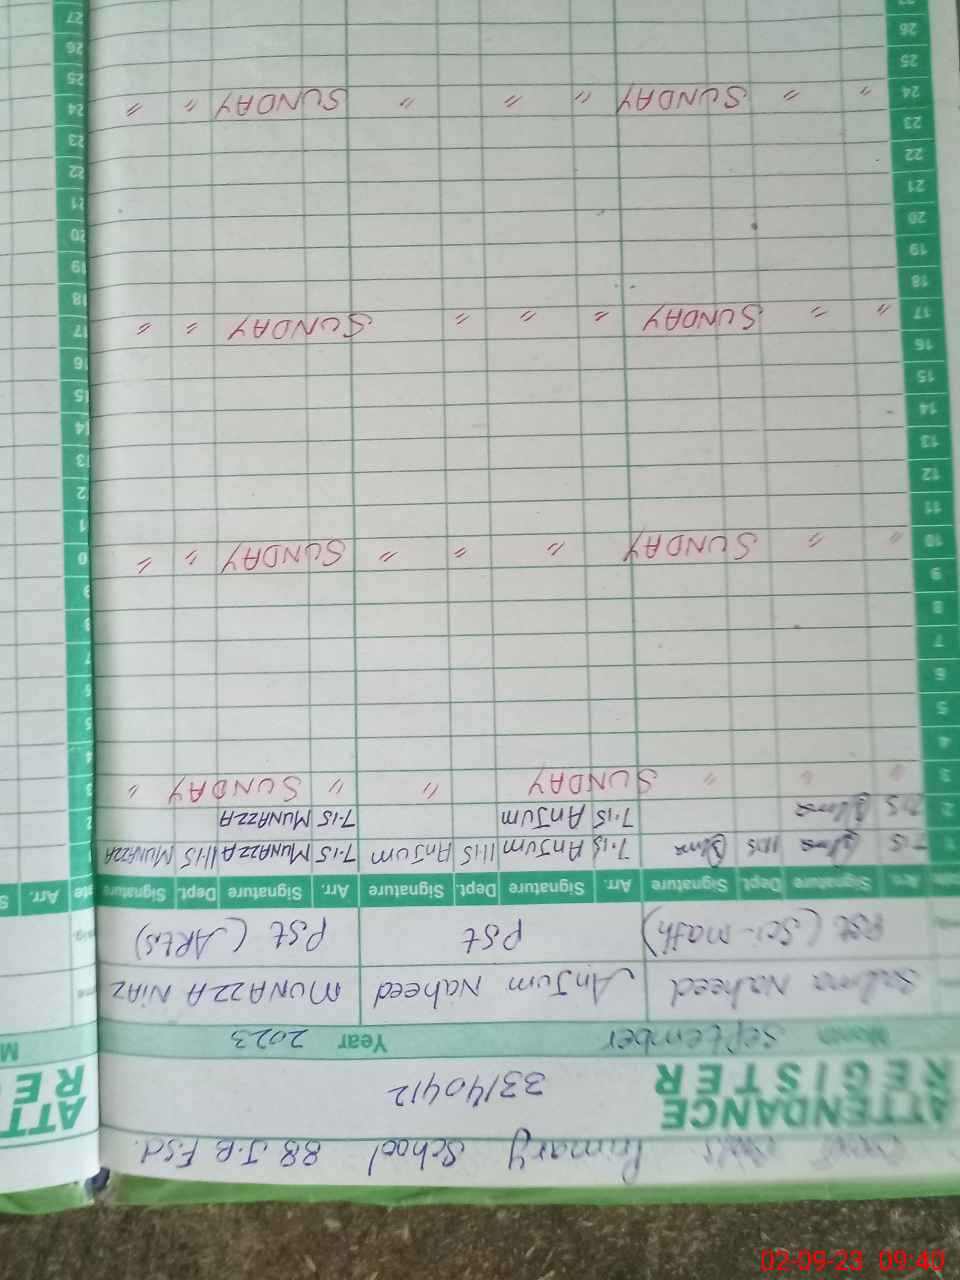 Primary School 88 J.B Fsd.
ATTENDANCE REGISTER 33140412
Month September Year 2023
Salma Naheed Anjum Naheed MUNAZZA NIAZ
PST (Sci-math) PST PST (ARTS)
Arr. Signature Dept. Signature Arr. Signature Dept. Signature Arr. Signature Dept. Signature
1 7.15 11.15 7.15 Anjum 11.15 Anjum 7.15 MUNAZZA 11.15 MUNAZZA
2 7.15 7.15 Anjum 7.15 MUNAZZA
3 " " " SUNDAY " " SUNDAY "
4
5
6
7
8
9
10 " " SUNDAY " " " SUNDAY " "
11
12
13
14
15
16
17 " " SUNDAY " " " SUNDAY " "
18
19
20
21
22
23
24 " " SUNDAY " " " SUNDAY " "
25
26
27
ATT
RE
M
Arr. S
02-09-23 09:40